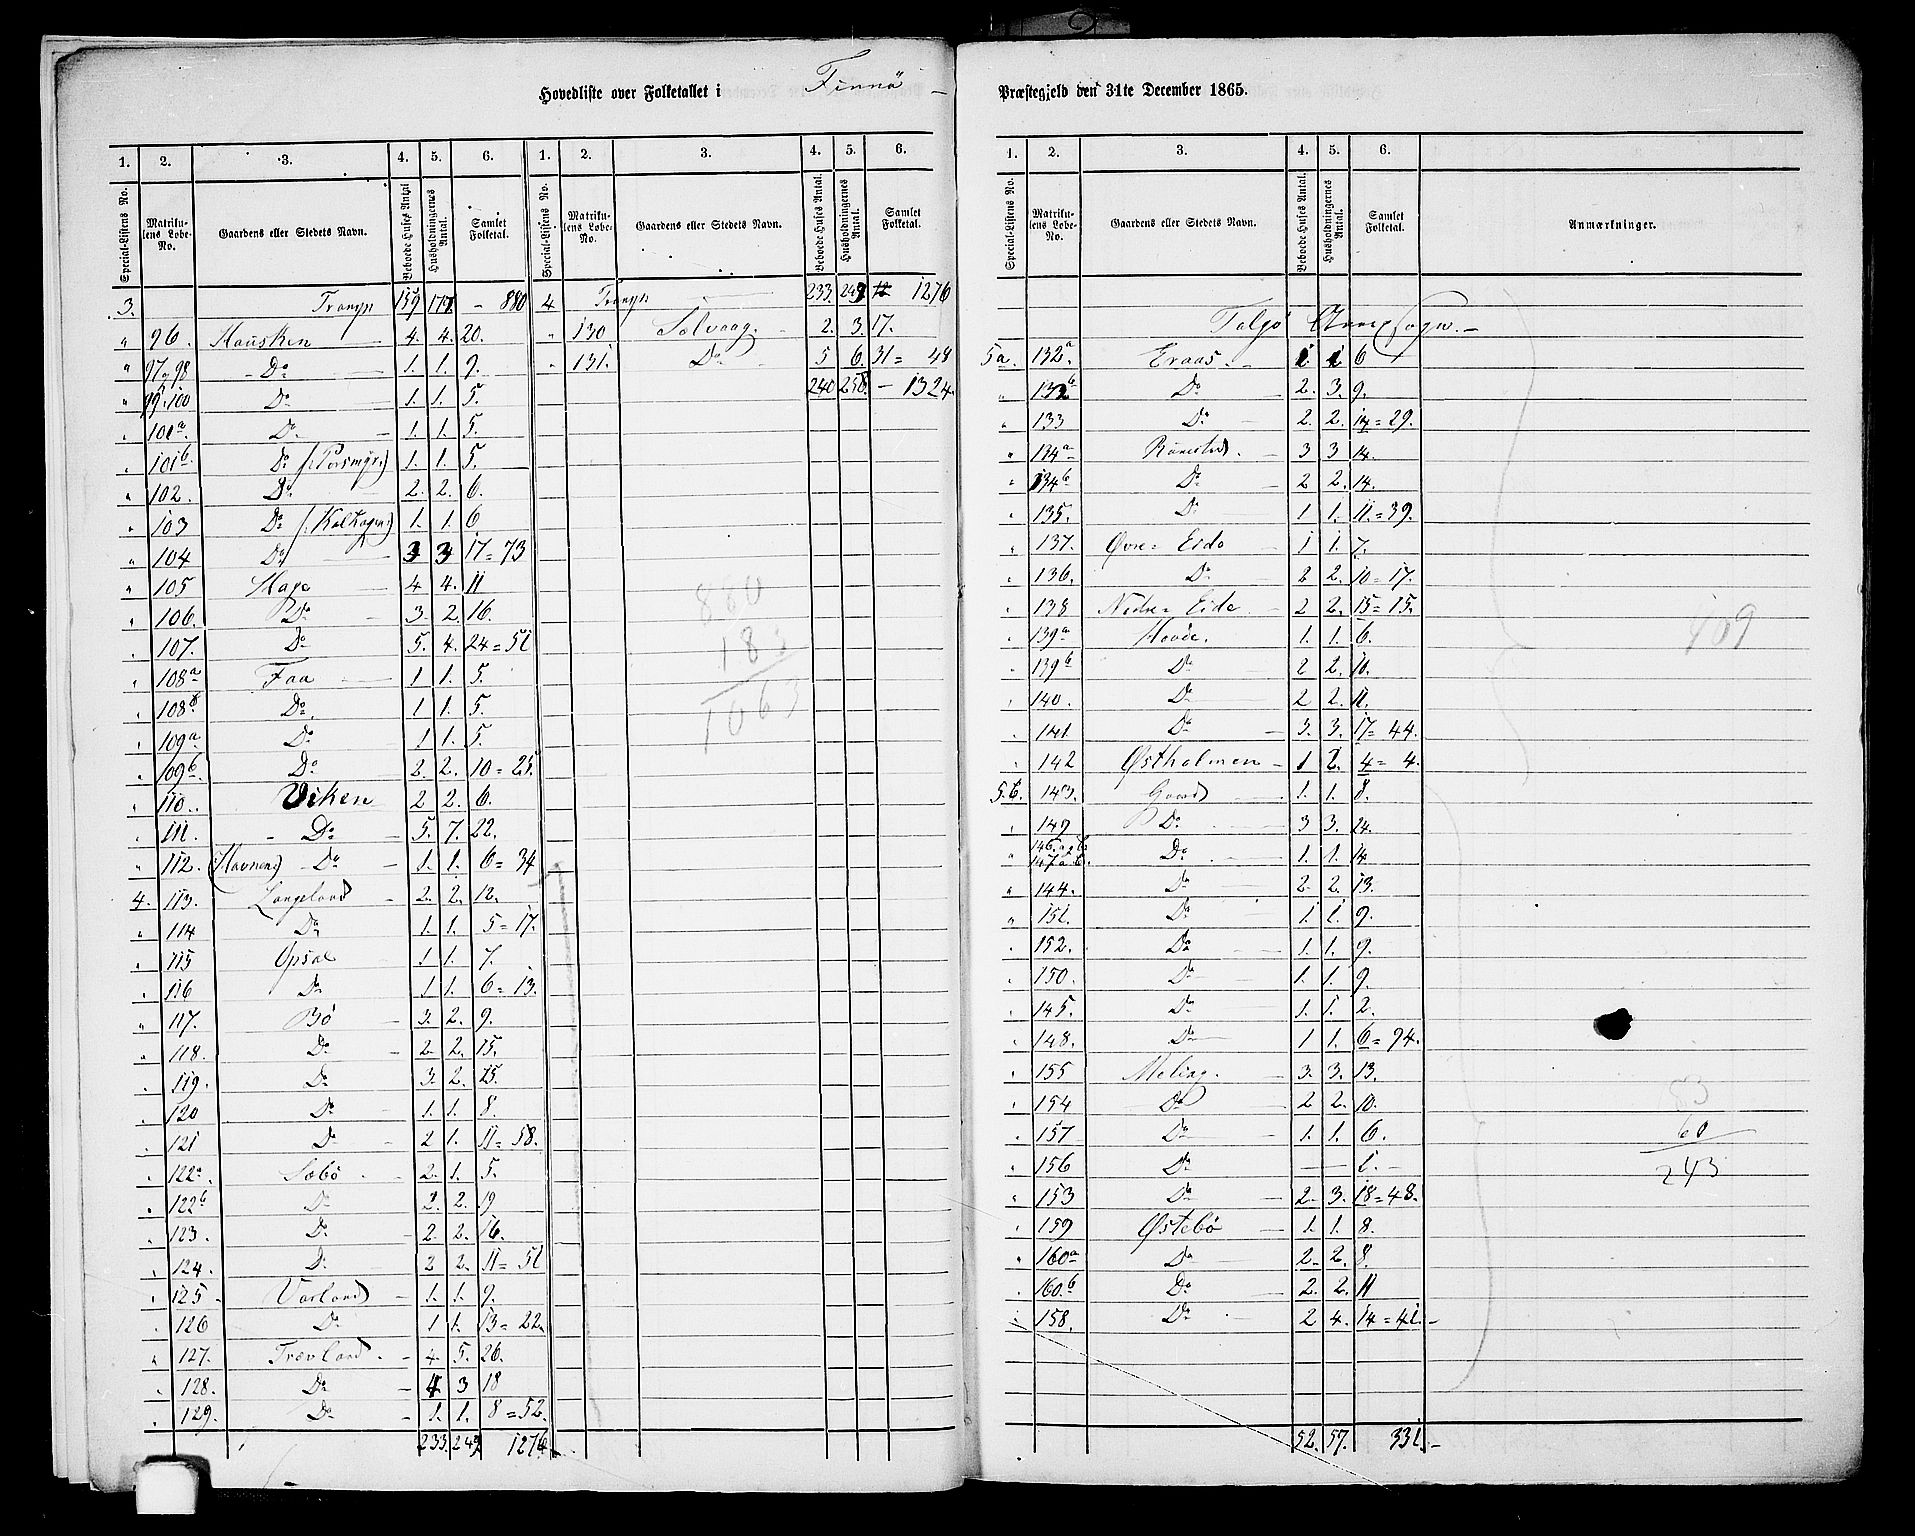 Hovedliste over Folketallet i Finnö Præstegjeld den 31te December 1865.
1. 2. 3. 4. 5. 6. 1. 2. 3. 4. 5. 6.
Special-Listens No. Matrikulens Løbe-No. Gaardens eller Stedets Navn. Beboede Huses Antal Husholdningernes Antal. Samlet Folketal. Special-Listens No. Matrikulens Løbe-No. Gaardens eller Stedets Navn. Beboede Huses Antal. Husholdningernes Antal. Samlet Folketal.
3. Transp 159 177 - 880
" 96. Hausken 4. 4. 20.
" 97 98 - Do 1. 1. 9.
" 99. 100 Do 1. 1. 5.
" 101a. Do. 1. 1. 5.
" 101b. Do 1. 1. 5.
" 102. Do 2. 2. 6.
" 103 Do 1. 1. 6
" 104 Do 3 3 17 = 73
" 105 Hage 4 4. 11
" 106. Do 3. 2. 16.
" 107. Do 5. 4. 24 = 51
" 108a Faa 1 1. 5.
" 108b Do. 1 1. 5.
" 109a Do 1 1. 5.
" 109b. Do 2. 2. 10 = 25.
" 110. Viken 2 2. 6.
" 111. - Do 5. 7. 22.
" 112. (Havnen) - Do 1. 1. 6 = 34
4. 113. Langeland 2. 2. 12.
" 114 Do 1. 1. 5 = 17.
" 115 Opsal 1 1. 7.
" 116 Do 1 1. 6 = 13.
" 117. Bö 3. 2. 9.
" 118. Do 2. 2. 15.
" 119. Do 3. 2. 15.
" 120 Do 1. 1. 8.
" 121 Do 2 1. 11 = 58.
" 122a. Sæbö 2. 1. 5.
" 122b Do 2. 2. 19
" 123. Do 2. 2. 16.
" 124. Do 2 2. 11 = 51
" 125 Varland 1. 1. 9.
" 126 Do 1 1. 13 = 22.
" 127. 4. 5. 26.
" 128. Do 4 3 18
" 129. Do 1. 1. 8 = 52.
233. 249 1276
4 Transp 233. 249 1276
" 130 Selvaag. 2. 3. 17.
" 131. Do 5 6. 31 = 48
240 258. - 1324.
880
183
1063
1. 2. 3. 4. 5. 6.
Special-Listens No. Matrikulens Løbe-No. Gaardens eller Stedets Navn. Beboede Huses Antal. Husholdningernes Antal. Samlet Folketal. Anmærkninger.
Talgö Annexsogn.
5a. 132a Eraas. 1. 1 6
" 132b Do 2. 3. 9.
" 133 Do 2. 2. 14 = 29.
" 134a 3 3 14.
" 134b Do 2 2. 14.
" 135. Do 1 1. 11. = 39.
" 137. Øvre Eide 1 1. 7.
" 136. Do 2 2. 10 = 17.
" 138 Nedre Eide. 2 2. 15 = 15.
" 139a Hovde. 1. 1. 6.
" 139b Do 2 2. 10.
" 140. Do 2 2. 11.
" 141. Do 3. 3. 17 = 44.
" 142 Østholmen 1 2. 4 = 4.
5.b. 143. Gaard 1. 1. 8.
" 149 Do. 3 3. 24.
" 146. a & b 147 a & b. Do 1. 1. 14
" 144. Do 2. 2. 13.
" 151. Do 1. 1. 9.
" 152. Do 1. 1. 9.
" 150. Do 1. 1. 9.
" 145. Do 1. 1. 2.
" 148. Do 1 1. 6 = 94.
" 155 Meling. 3. 3. 13.
" 154 Do 2 2. 10.
" 157 Do 1. 1. 6.
" 156 Do 1.
" 153 Do 2. 3. 18 = 48.
" 159 Østebö 1. 1. 8.
" 160a Do 2. 2. 8.
" 160.b Do 2. 2. 11
" 158. Do 2 4. 14 = 41.
52. 57. 331.
109
83
60
243